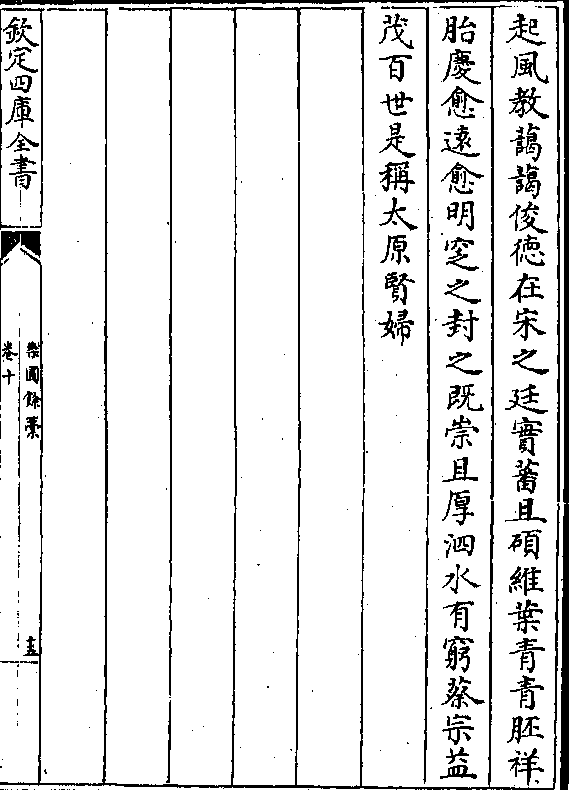 起風教藹藹俊徳在宋之廷實蕃且碩維葉青青胚祥
胎慶愈逺愈明窆之封之既崇且厚泗水有窮蔡宗益
茂百世是稱太原賢婦
欽定四庫全書
樂圃餘藳
卷十
十五